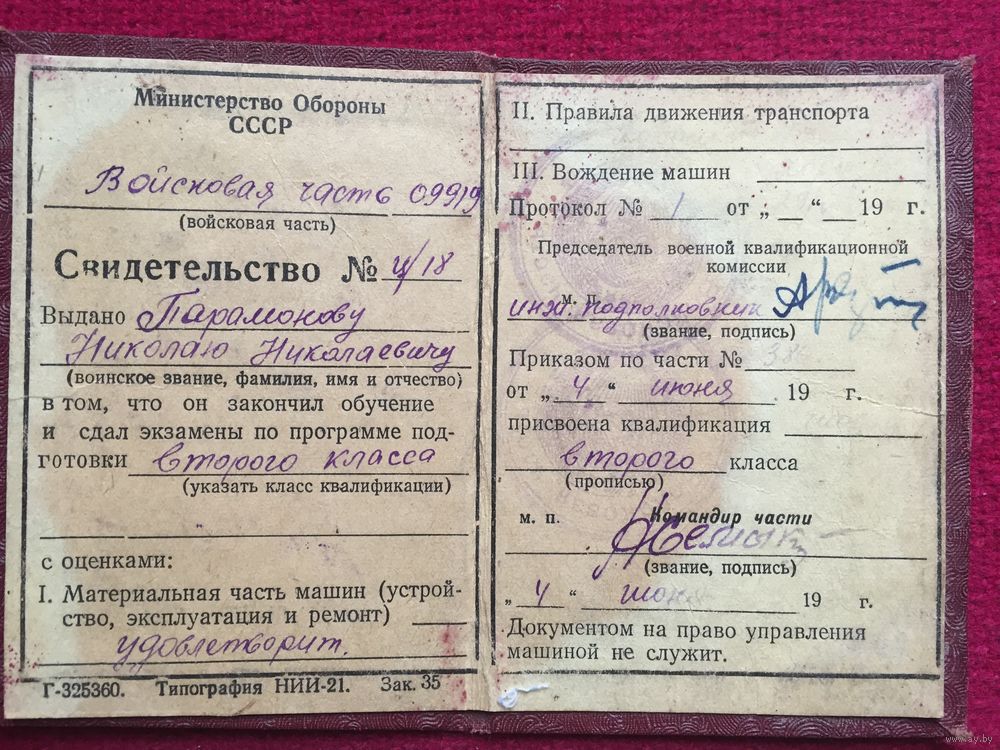 Министерство Обороны
СССР
Войсковая часть 09919
(войсковая часть)
Свидетельство № ц/18
Выдано Парамонову
Николаю Николаевичу
(воинское звание, фамилия, имя и отчество)
в том, что он закончил обучение
и сдал экзамены по программе под-
готовки второго класса
(указать класс квалификации)
с оценками:
I. Материальная часть машин (устрой-
ство, эксплуатация и ремонт)
удовлетворит.
Г-325360. Типография НИИ-21. Зак. 35
II. Правила движения транспорта
III. Вождение машин
Протокол № 1 от „ “ 19 г.
Председатель военной квалификационной
комиссии
м. п.
инж. подполковник
(звание, подпись)
Приказом по части № 38
от „ 4 “ июня 19 г.
присвоена квалификация
второго класса
(прописью)
м. п. Командир части
(звание, подпись)
„ 4 “ июня 19 г.
Документом на право управления
машиной не служит.
www.ay.by